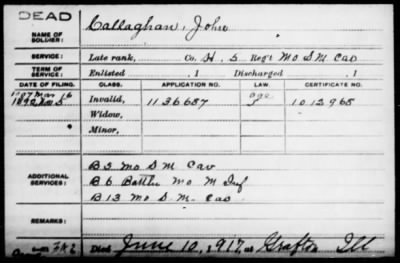 DEAD
NAME OF SOLDIER: Callaghan, John
SERVICE: Late rank, Co. H. 5 Reg't Mo S M Cav
TERM OF SERVICE: Enlisted , 1 Discharged , 1
DATE OF FILING. CLASS. APPLICATION NO. LAW. CERTIFICATE NO.
1907 Mar 16 Age
1892 Invalid, 1136687 1012968
Widow,
Minor,
B 5 Mo S M Cav
ADDITIONAL SERVICES: B 6 Battln Mo M Inf
B 13 Mo S. M. Cav
REMARKS:
Died June 10, 1917, at Grafton Ill